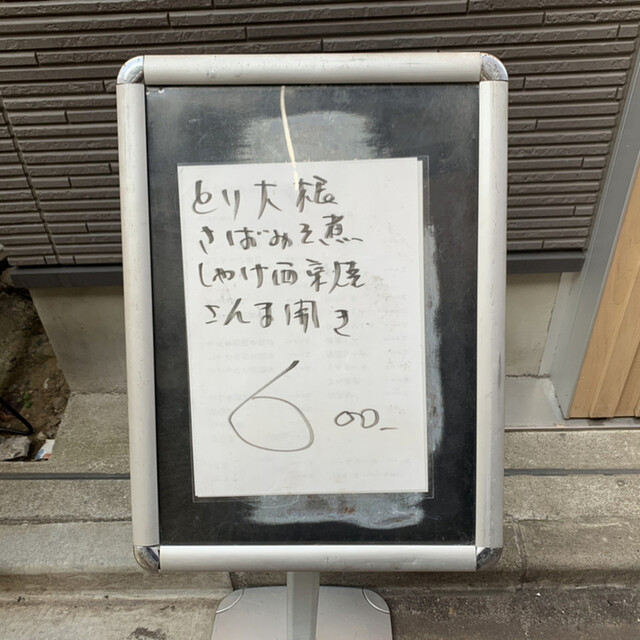 とり大根
さばみそ煮
しゃけ西京焼
さんま開き
600-